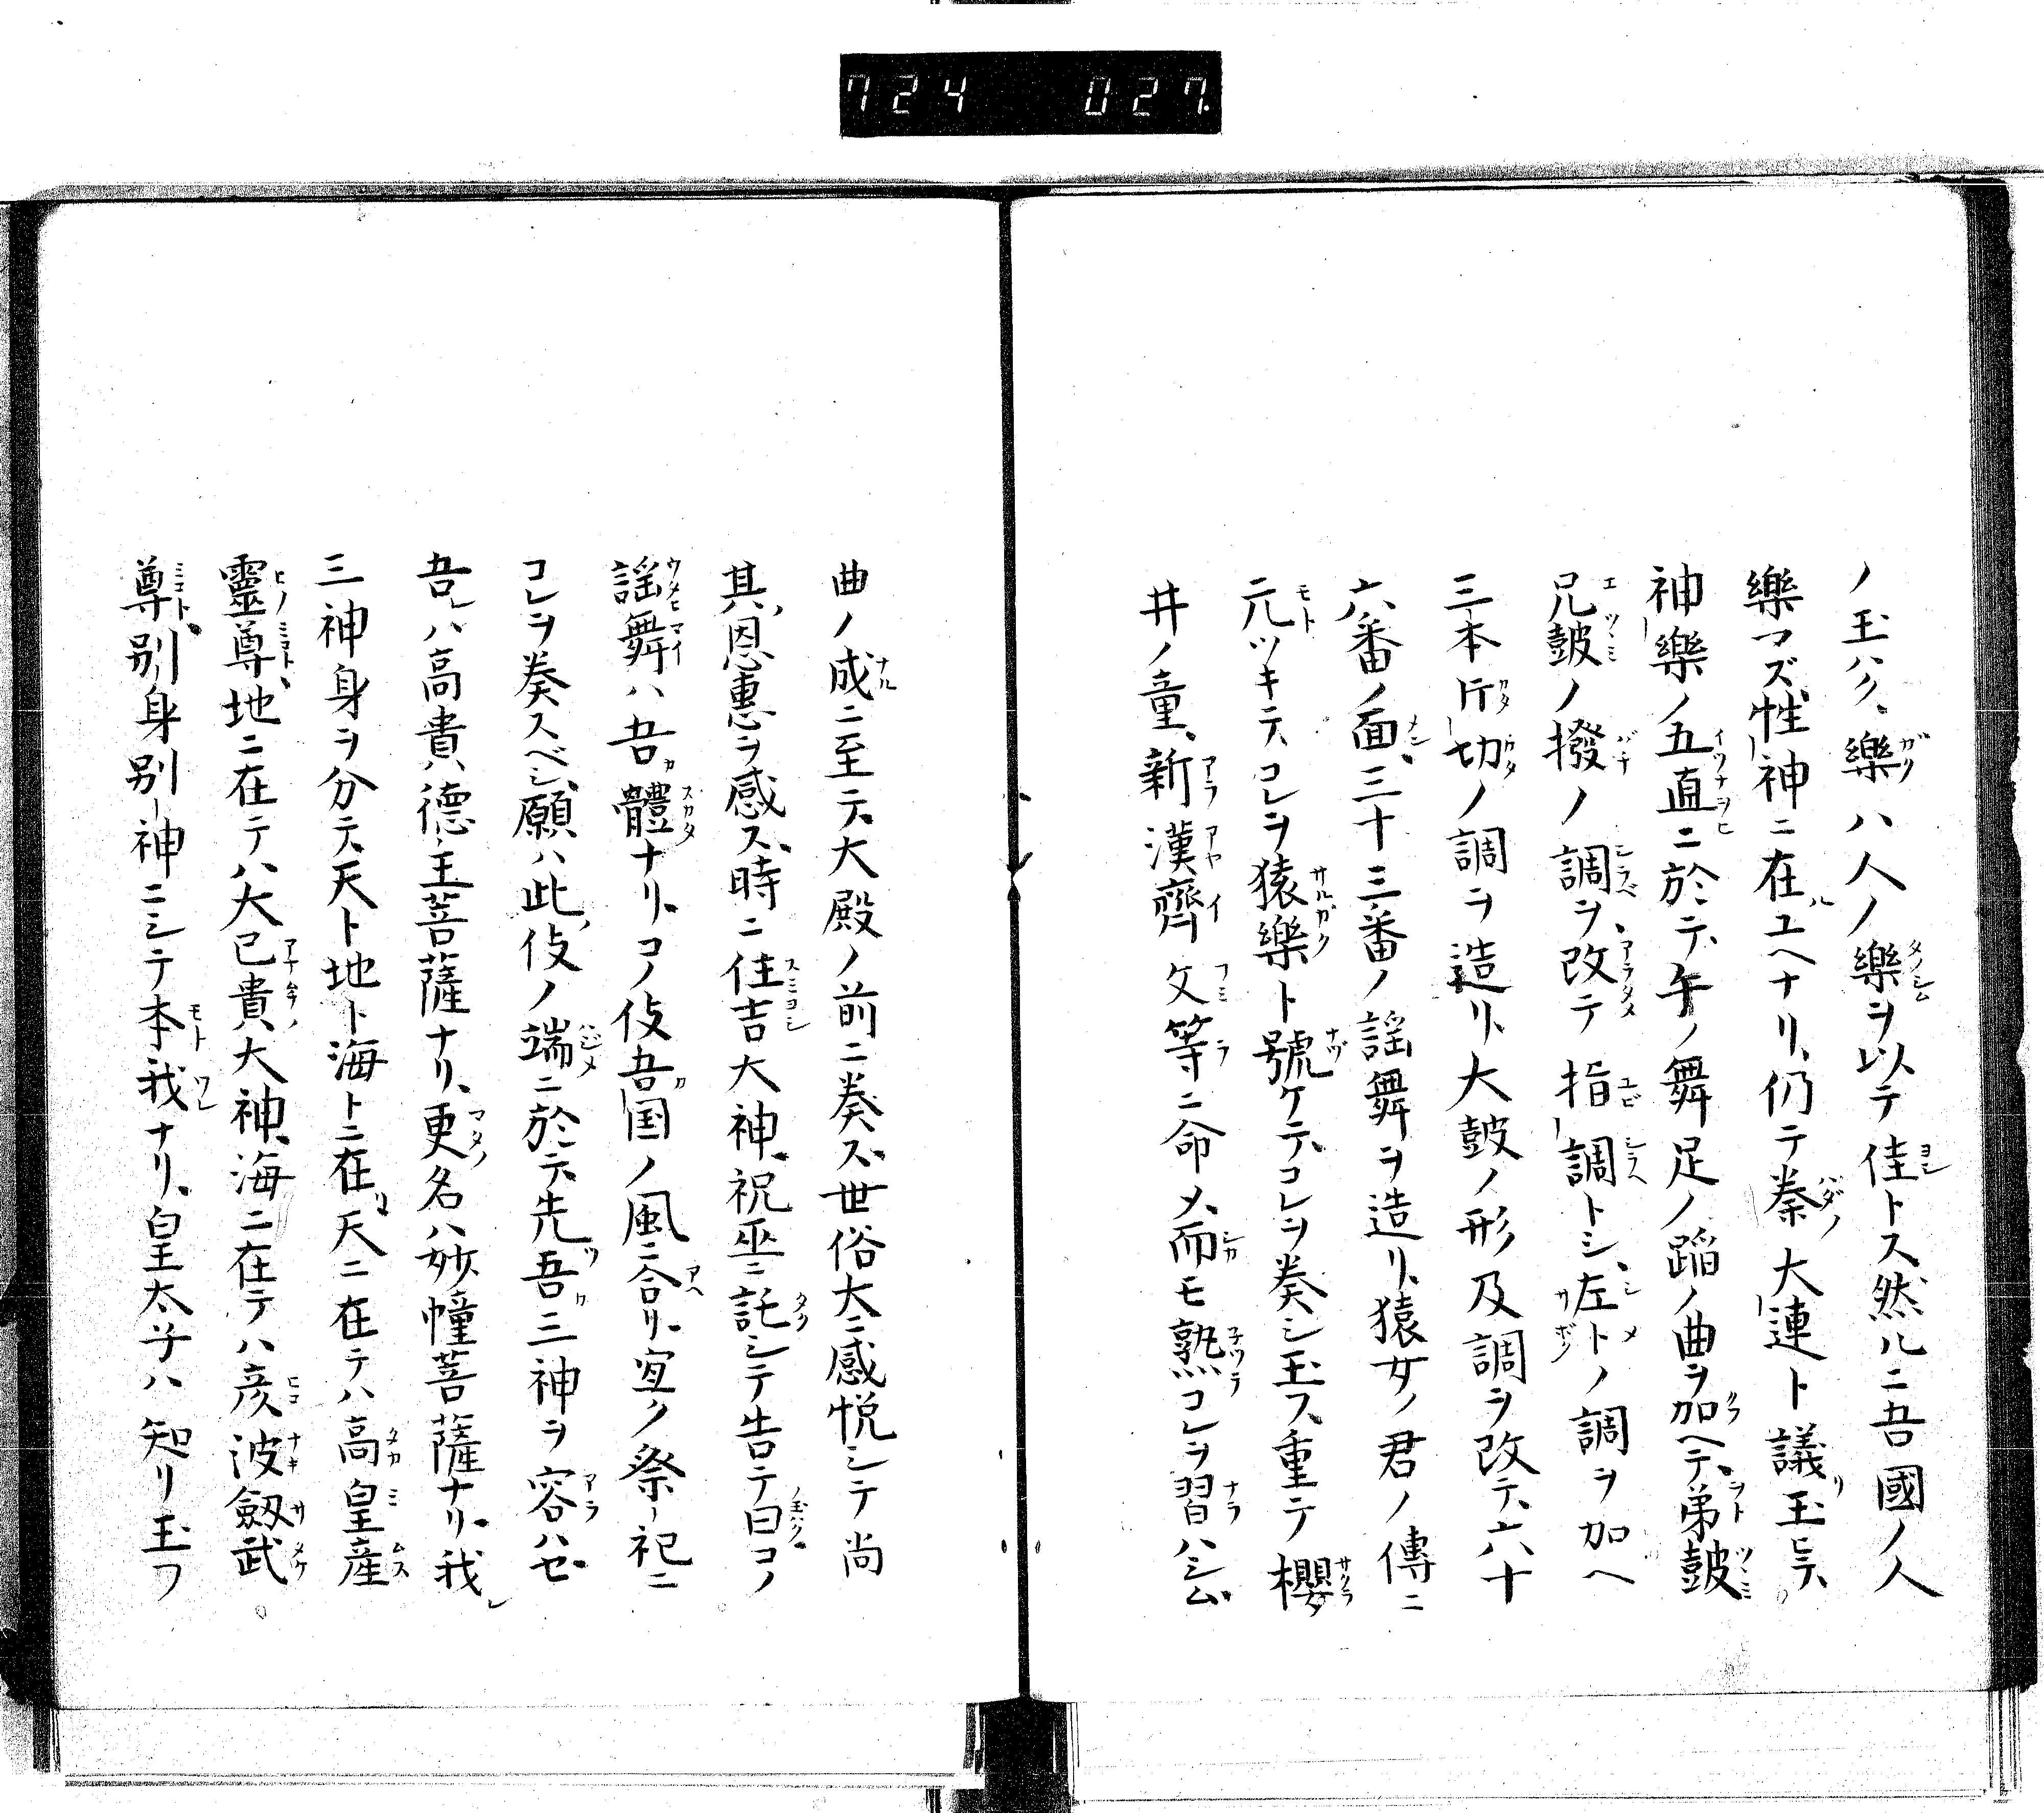 724 027.
ノ玉ハク、樂ハ人ノ樂ヲ以テ佳トス然ルニ吾國ノ人
樂マズ性神ニ在ユヘナリ、仍テ秦大連ト議玉ヒテ、
神樂ノ五直ニ於テ、午ノ舞足ノ蹈ノ曲ヲ加ヘテ、弟鼓
兄鼓ノ撥ノ調ヲ、改テ指調トシ、左トノ調ヲ加ヘ
三本片切ノ調ヲ造リ、大鼓ノ形及調ヲ改テ、六十
六番ノ面、三十三番ノ謡舞ヲ造リ、猿女ノ君ノ傳ニ
元ツキテ、コレヲ猿樂ト號ケテ、コレヲ奏シ玉フ、重テ櫻
井ノ童、新漢齊文等ニ命メ、而モ熟コレヲ習ハシム
曲ノ成ニ至テ、大殿ノ前ニ奏ス、世俗大ニ感悦シテ尚
其恩惠ヲ感ス、時ニ住吉大神、祝巫ニ託シテ告テ曰コノ
謡舞ハ吾體ナリ、コノ伎吾国ノ風ニ合リ、宜ク祭祀ニ
コレヲ奏スベシ、願ハ此伎ノ端ニ於テ、先吾三神ヲ容ハセ
吾レハ高貴德王菩薩ナリ、更名ハ妙幢菩薩ナリ、我
三神身ヲ分テ、天ト地ト海トニ在リ、天ニ在テハ高皇産
靈尊、地ニ在テハ大已貴大神、海ニ在テハ彦波劔武
尊、別身別神ニシテ本我ナリ、皇太子ハ知リ玉フ